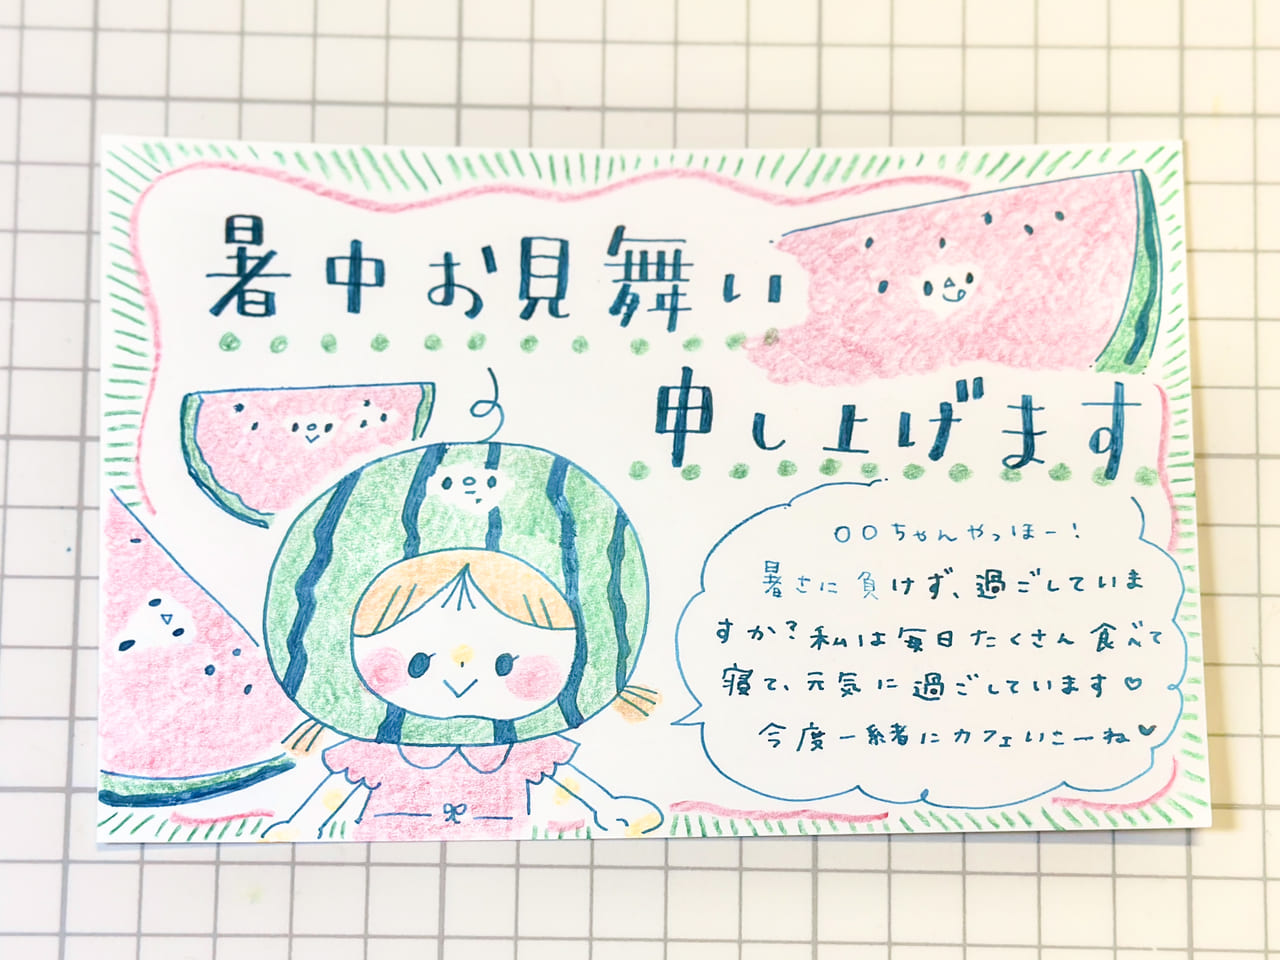 暑中お見舞い
申し上げます
〇〇ちゃんやっほー！
暑さに負けず、過ごしていま
すか？私は毎日たくさん食べて
寝て、元気に過ごしています♡
今度一緒にカフェいこーね♥